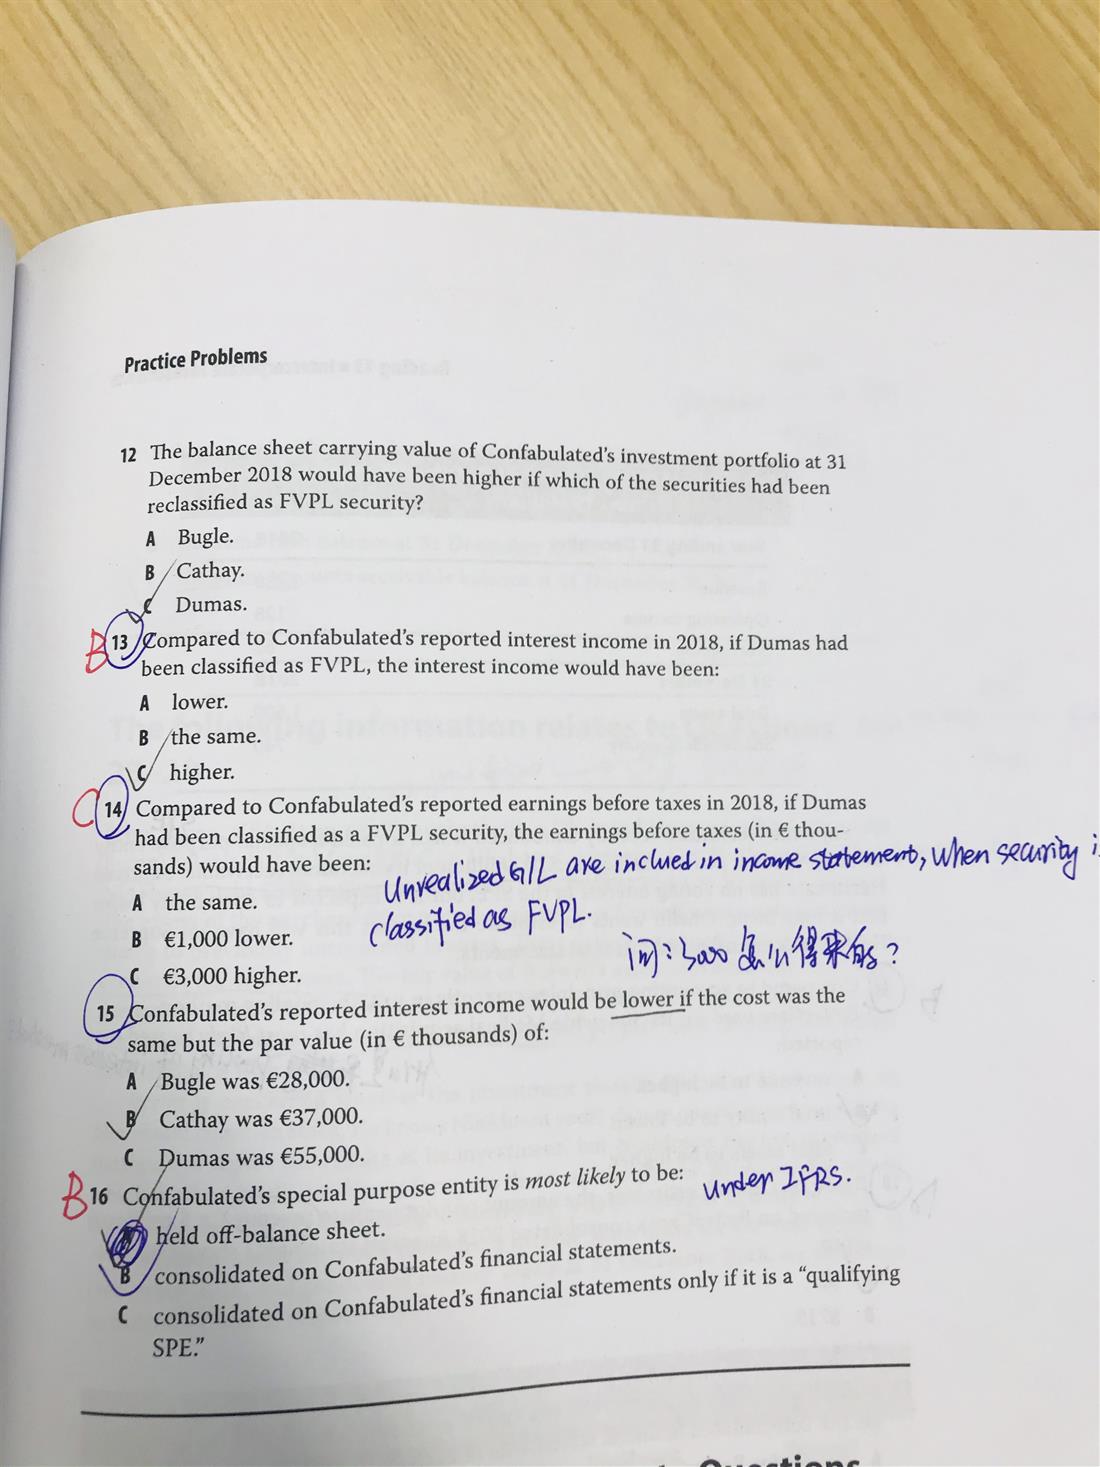 Practice Problems
12 The balance sheet carrying value of Confabulated's investment portfolio at 31
December 2018 would have been higher if which of the securities had been
reclassified as FVPL security?
A Bugle.
B Cathay.
C Dumas.
B 13 Compared to Confabulated's reported interest income in 2018, if Dumas had
been classified as FVPL, the interest income would have been:
A lower.
B the same.
C higher.
C 14 Compared to Confabulated's reported earnings before taxes in 2018, if Dumas
had been classified as a FVPL security, the earnings before taxes (in € thou-
sands) would have been:
Unrealized G/L are inclued in income statement, when security i
A the same.
classified as FVPL.
B €1,000 lower.
问:3000怎么得来的?
C €3,000 higher.
15 Confabulated's reported interest income would be lower if the cost was the
same but the par value (in € thousands) of:
A Bugle was €28,000.
B Cathay was €37,000.
C Dumas was €55,000.
B 16 Confabulated's special purpose entity is most likely to be: under IFRS.
A held off-balance sheet.
B consolidated on Confabulated's financial statements.
C consolidated on Confabulated's financial statements only if it is a “qualifying
SPE.”